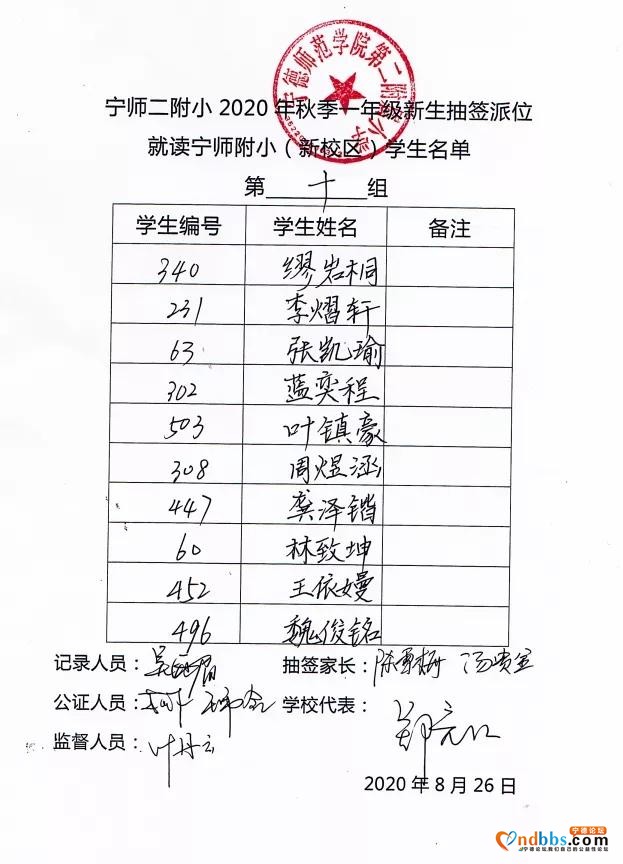 宁德师范学院第二附属小学
宁师二附小 2020 年秋季一年级新生抽签派位
就读宁师附小（新校区）学生名单
第 十 组
学生编号 学生姓名 备注
340 缪岩桐
231 李熠轩
63 张凯瑜
302 蓝奕程
503 叶镇豪
308 周煜涵
447 龚泽锴
60 林致坤
452 王依嫚
496 魏俊铭
记录人员： 抽签家长：
公证人员： 学校代表：
监督人员：叶丹云
2020 年 8 月 26 日
宁德论坛
ndbbs.com
宁德论坛,我们自己的公益性论坛